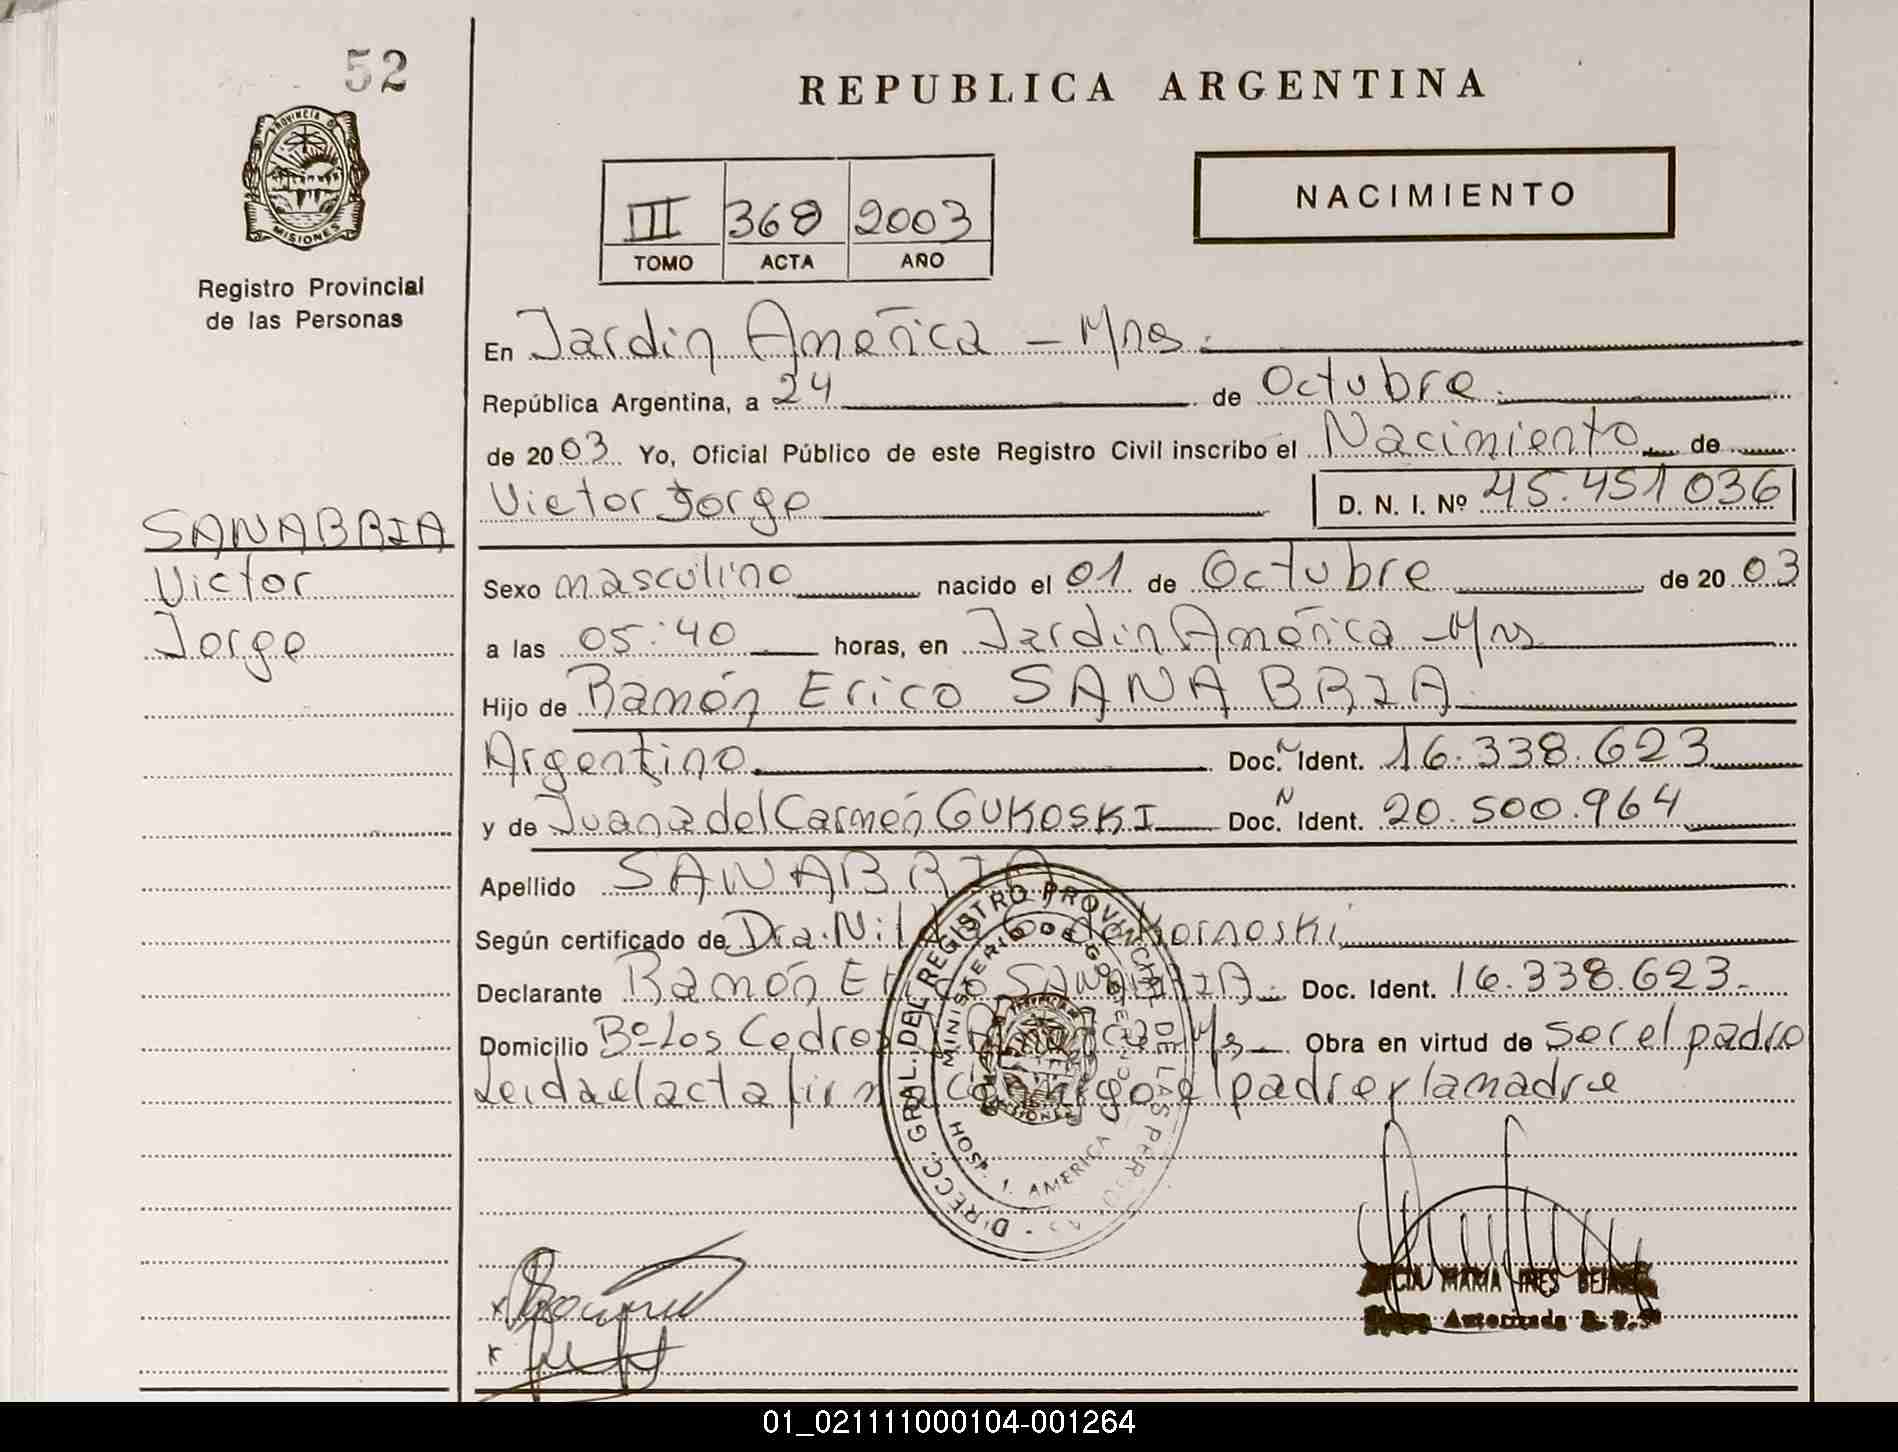 52
REPUBLICA ARGENTINA
PROVINCIA DE
MISIONES
Registro Provincial
de las Personas
III 368 2003
TOMO ACTA AÑO
NACIMIENTO
En Jardin América - Mns.
República Argentina, a 24 de Octubre
de 2003 Yo, Oficial Público de este Registro Civil inscribo el Nacimiento de
Victor Jorge D. N. I. Nº 45.451 036
SANABRIA
Victor
Jorge
Sexo masculino nacido el 01 de Octubre de 2003
a las 05:40 horas, en Jardin América - Mns
Hijo de Ramón Erico SANABRIA
Argentino Doc. N Ident. 16.338.623
y de Juana del Carmen GUKOSKI Doc. N Ident. 20.500.964
Apellido SANABRIA
Según certificado de Dra. de Kornoski
Declarante Ramón Erico SANABRIA Doc. Ident. 16.338.623
Domicilio Bº Los Cedros J. América Ms Obra en virtud de ser el padre
Leida el acta firma conmigo el padre y la madre
DIRECC. GRAL. DEL REGISTRO PROVINCIAL DE LAS PERSONAS
MINISTERIO DE GOBIERNO
HOSP. J. AMERICA
MARIA INES
Autorizada R. P. P.
01_021111000104-001264